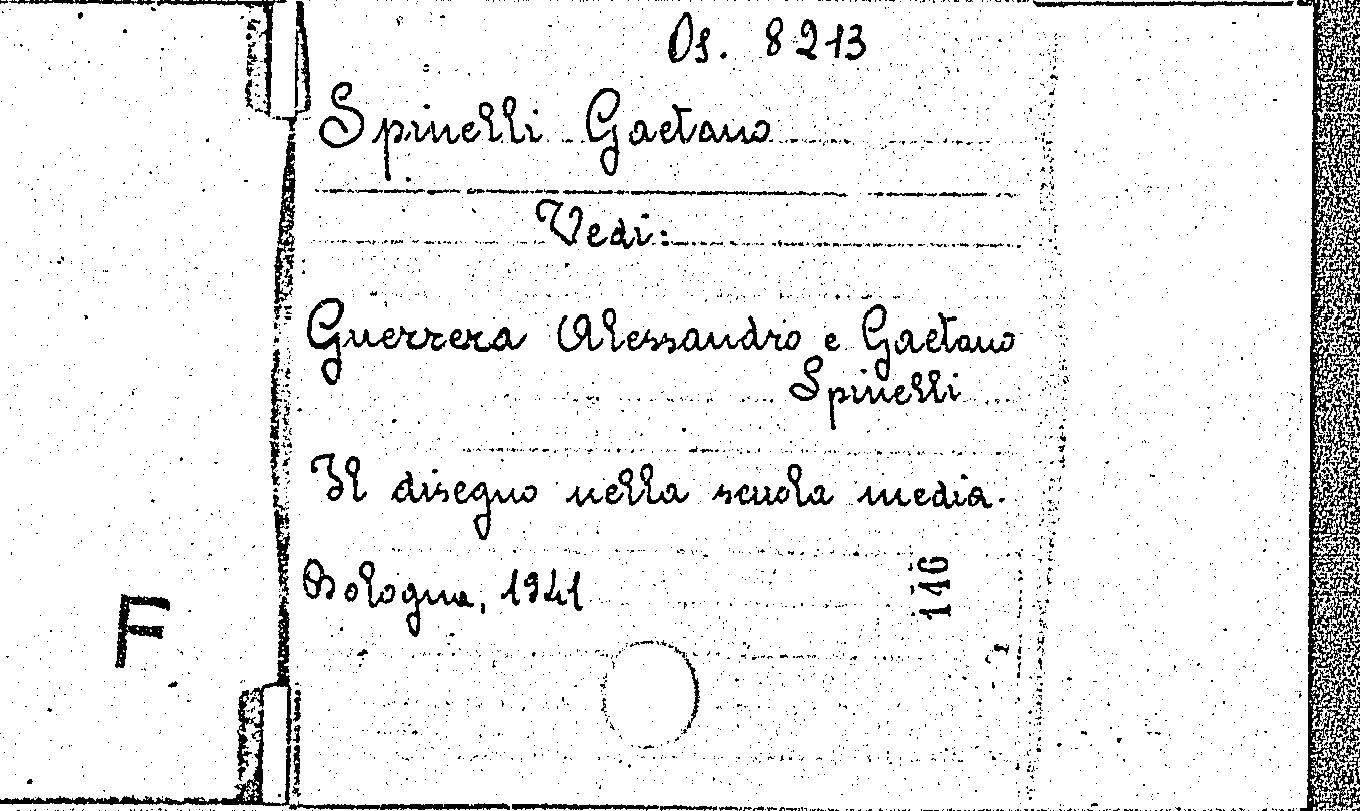 Os. 8213
Spinelli Gaetano
Vedi:
Guerrera Alessandro e Gaetano
Spinelli
Il disegno nella scuola media.
Bologna, 1941
146
F